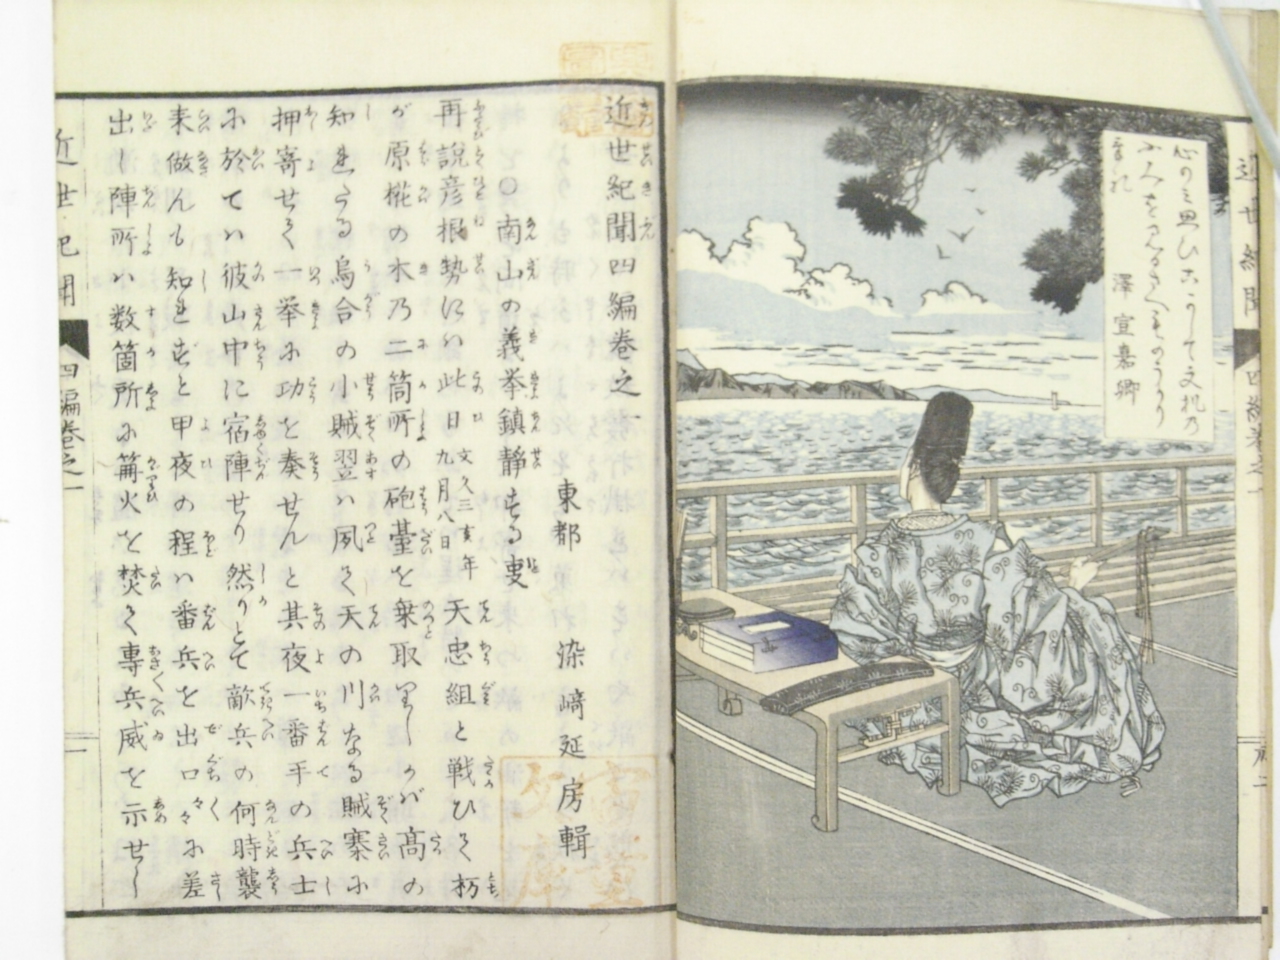 近世紀聞 四編巻之一
心の
澤宣嘉卿
近世紀聞四編巻之一
東都 染﨑延房輯
○南山の義挙鎮静する叓
再説彦根勢にハ此日文久三亥年九月八日天忠組と戦ひて栃
が原樅の木乃二箇所の砲臺を乗取りしかバ高の
知れたる烏合の小賊翌ハ夙く天の川なる賊寨に
押寄せて一挙に功を奏せんと其夜一番手の兵士
に於てハ彼山中に宿陣せり然りとて敵兵の何時襲
来做んも知れずと甲夜の程ハ番兵を出口々々に差
出し陣所ハ数箇所に篝火を焚き専兵威を示せし
近世紀聞 四編巻之一